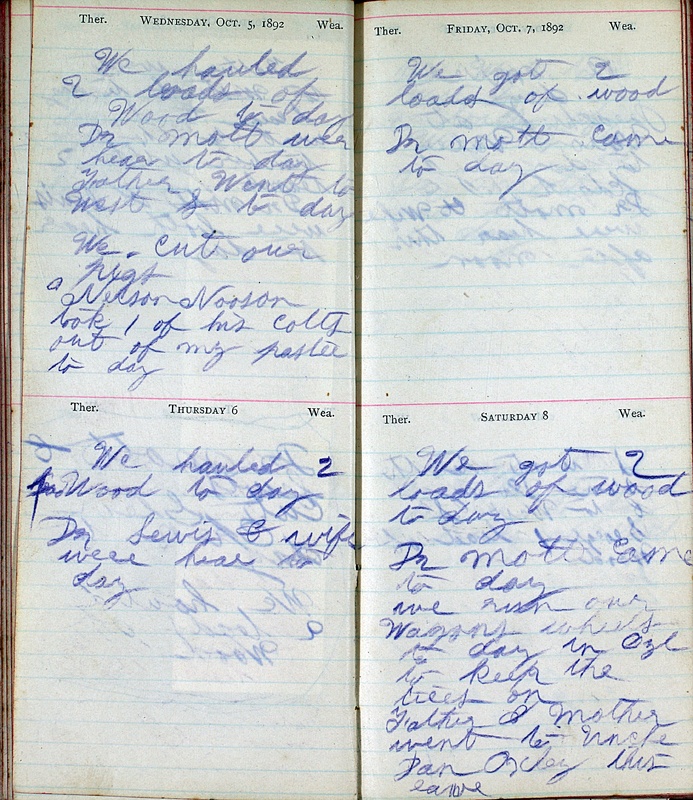 Ther. WEDNESDAY, OCT. 5, 1892 Wea.
We hauled
2 loads of
Wood to day
Dr mott wer
hear to day
Father Went to
West to day
We cut our
pigs
Nelson
took 1 of his colts
out of my pastee
to day
Ther. THURSDAY 6 Wea.
We hauled 2
Wood to day
Dr Lewis & wife
were hear to
day
Ther. FRIDAY, OCT. 7, 1892 Wea.
We got 2
loads of wood
Dr mott Came
to day
Ther. SATURDAY 8 Wea.
We got 2
loads of wood
to day
Dr mott Came
to day
we run our
Wagons wheels
to day in
to keep the
tiees on
Father & Mother
went to Uncle
Dan this
eawe